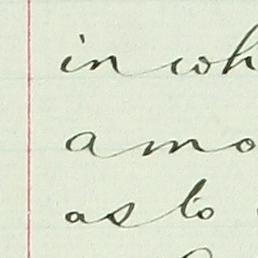 in wh
a mo
as to